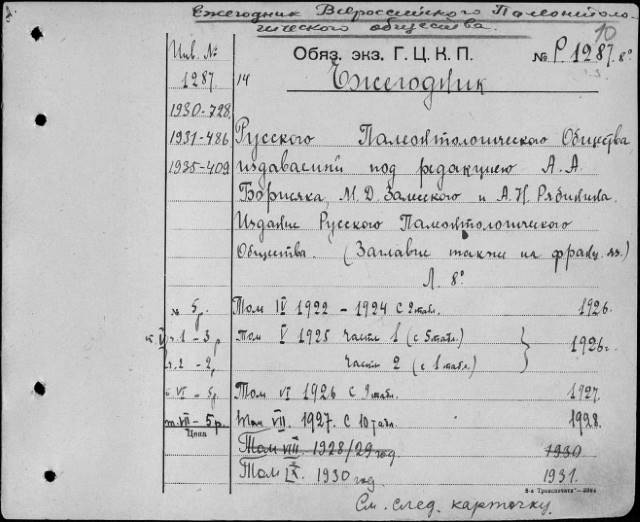 Ежегодник Всероссийского Палеонтоло-
гического общества.
10
Инв. № Обяз. экз. Г. Ц. К. П. № Р 1287. 8°
1287 14 Ежегодник
1930-728
1931-486 Русского Палеонтологического Общества
1935-409 издаваемый под редакциею А. А.
Борисяка, М. Д. Залесского и А. Н. Рябинина.
Издание Русского Палеонтологического
Общества. (Заглавие также на франц. яз.)
Л. 8°
№ 5 р. Том IV 1922 - 1924 с 2 табл. 1926.
к V ч. 1 - 3 р Том V 1925 часть 1 (с 5 табл.) 1926г.
ч. 2 - 2 р часть 2 (с 1 табл.)
VI - 5 р. Том VI 1926 с 9 табл. 1927.
т. VII - 5 р. Том VII. 1927. с 10 табл. 1928.
Цена
Том VIII. 1928/29 год 1930
Том IX. 1930 год. 1931.
См. след. карточку.